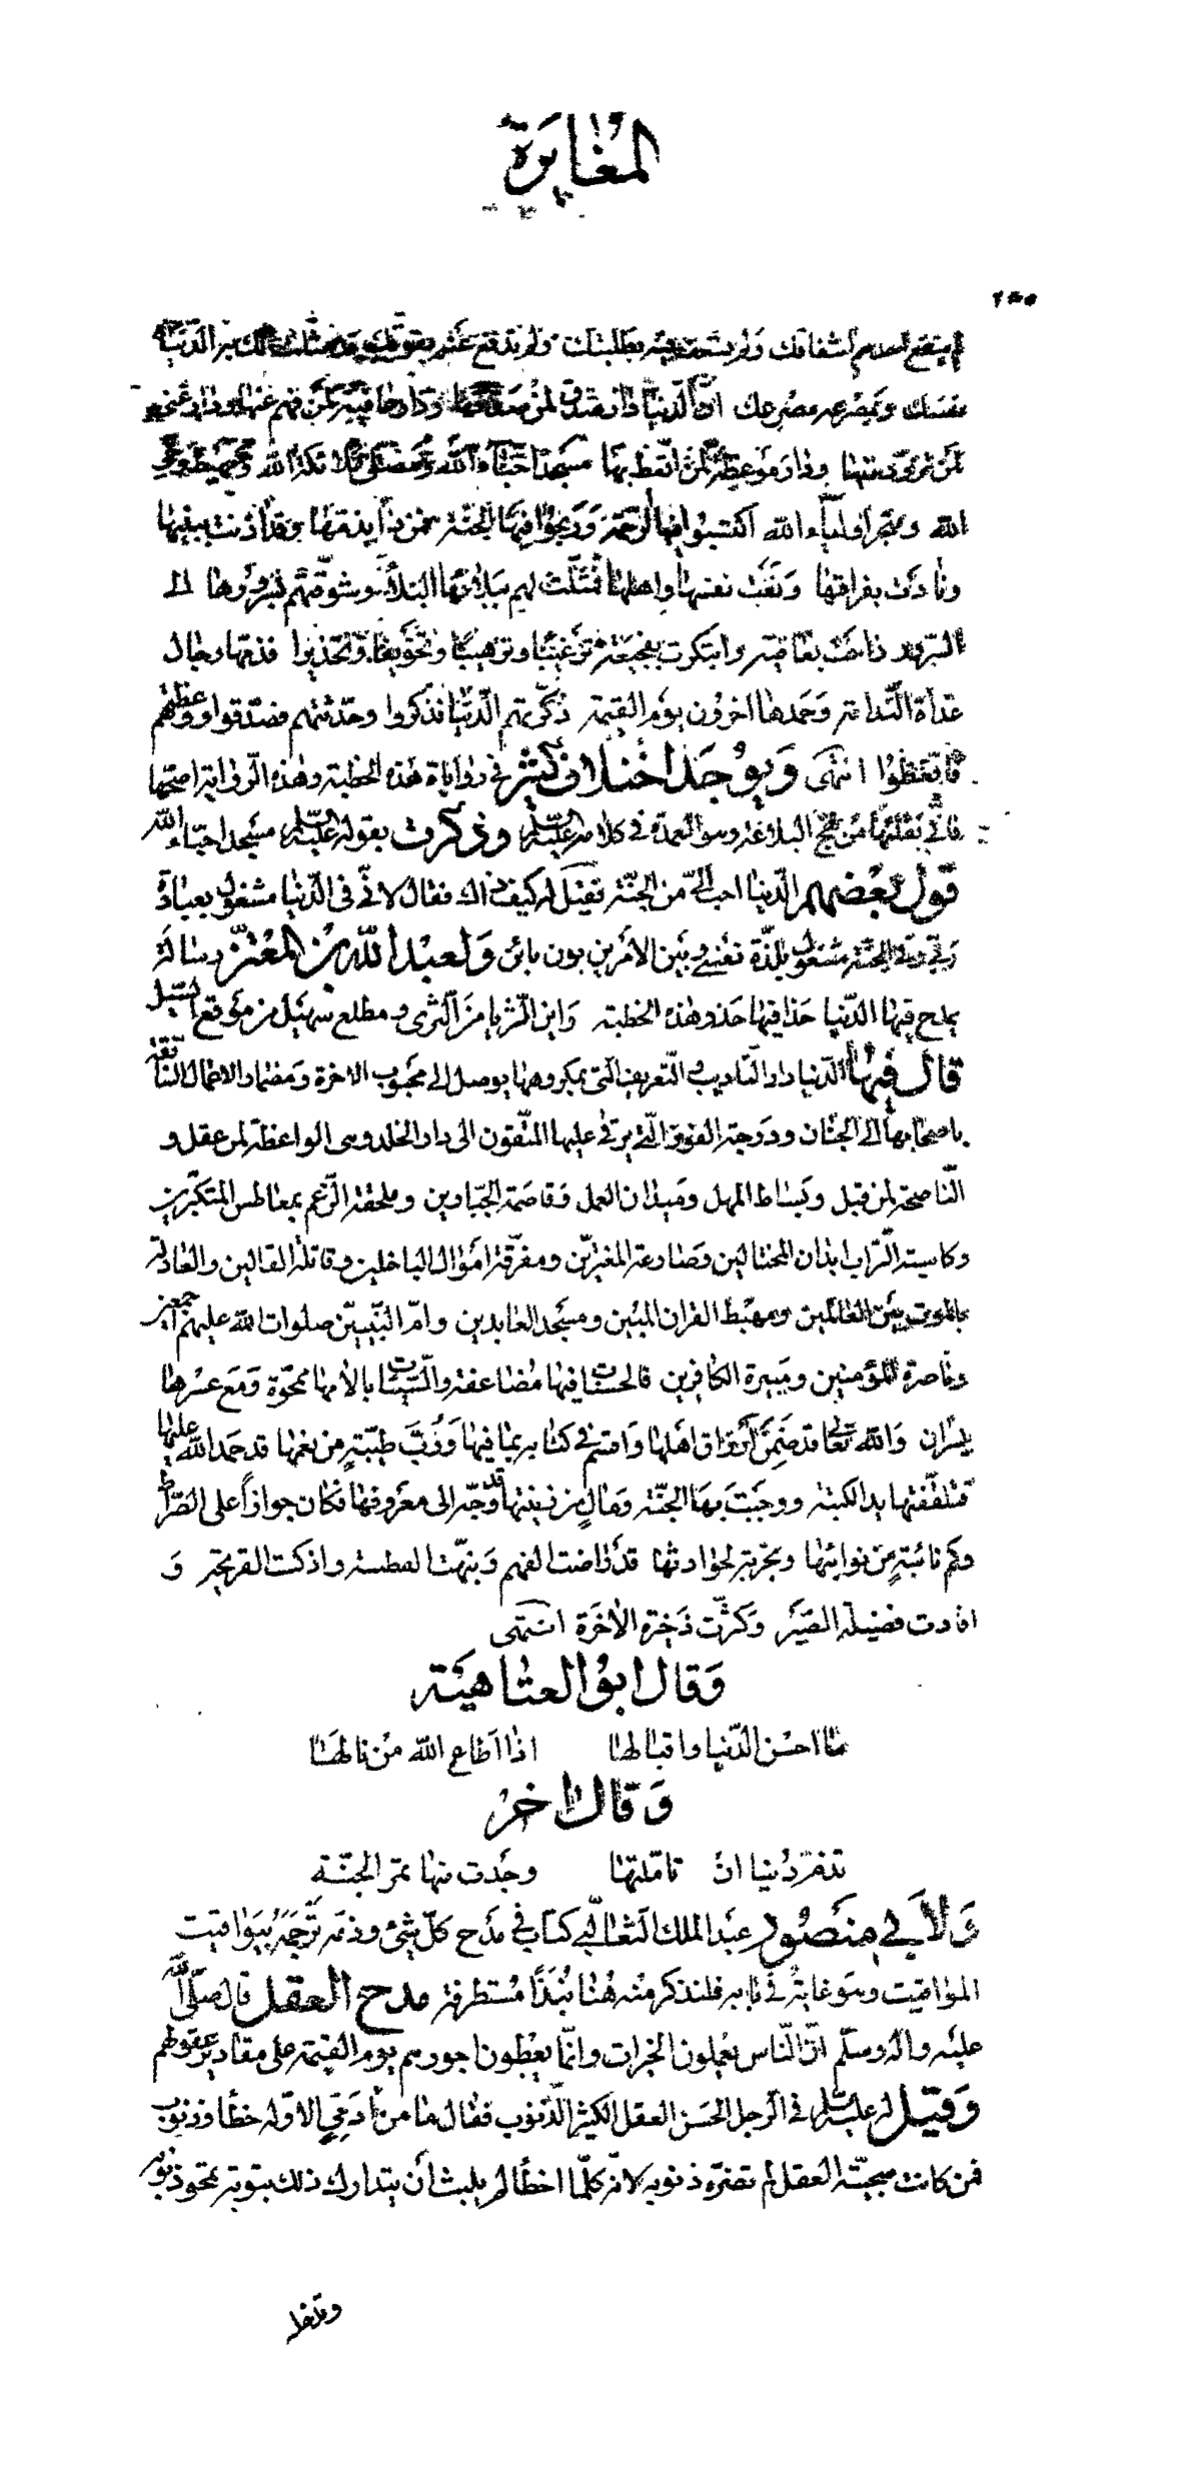 المغايرة
٢٥٥
لم ينفع احدهم اشفاقك ولم تسعف فيه بطلبتك ولم تدفع عنه بقوتك قد مثلت لك به الدنيا
نفسك وبمصرعه مصرعك ان الدنيا دار صدق لمن صدقها ودار عافية لمن فهم عنها ودار غنى
لمن تزود منها ودار موعظة لمن اتعظ بها مسجد احباء الله ومصلى ملائكة الله ومهبط وحى
الله ومتجر اولياء الله اكتسبوا فيها الرحمة وربحوا فيها الجنة فمن ذا يذمها وقد اذنت ببينها
ونادت بفراقها ونعت نفسها واهلها فمثلت لهم ببلائها البلاء وشوقتهم بسرورها الى
السرور راحت بعافية وابتكرت بفجيعة ترغيبا وترهيبا وتخويفا وتحذيرا فذمها رجال
غداة الندامة وحمدها اخرون يوم القيمة ذكرتهم الدنيا فذكروا وحدثتهم فصدقوا ووعظتهم
فاتعظوا انتهى ويوجد اختلاف كثير فى روايات هذه الخطبة وهذه الرواية اصحها
فانى نقلتها من نهج البلاغة وهو العمدة فى كلامه عليه السلام وذكرت بقوله عليه السلام مسجد احباء الله
قول بعضهم الدنيا احب الىّ من الجنة فقيل له كيف ذاك فقال لانى فى الدنيا مشغول بعبادة
ربى وفى الجنة مشغول بلذة نفسى وبين الامرين بون بائن ولعبد الله بن المعتز رسالة
يمدح فيها الدنيا حذا فيها حذو هذه الخطبة واين الثريا من الثرى ومطلع سهيل من موقع السيل
قال فيها الدنيا دار التاديب والتعريف التى بمكروهها يوصل الى محبوب الاخرة ومضمار الاعمال السابقة
باصحابها الى الجنان ودرجة الفوز التى يرتقى عليها المتقون الى دار الخلد وهى الواعظة لمن عقل و
الناصحة لمن قبل وبساط المهل وميدان العمل وقاصمة الجبارين وملحقة الرغم بمعاطس المتكبرين
وكاسية التراب ابدان المختالين وصارعة المغترين ومفرقة اموال الباخلين وقاتلة القاتلين والعادلة
بالموت بين العالمين ومهبط القران المبين ومسجد العابدين وام النبيين صلوات الله عليهم اجمعين
وناصرة المؤمنين ومبيرة الكافرين فالحسنات فيها مضاعفة والسيئات بالامها ممحوة ومع عسرها
يسران والله تعالى قد ضمن ارزاق اهلها واقسم فى كتابه بما فيها ورب طيبة من نعمها قد حمد الله عليها
فتلقفتها يد الكتبة ووجبت بها الجنة ومال من زينتها قد وجه الى معروفها فكان جوازا على الصراط
وكم نائبة من نوائبها وتجربة لحوادثها قد راضت الفهم ونبهت الفطنة واذكت القريحة و
افادت فضيلة الصبر وكثرت ذخيرة الاخرة انتهى
وقال ابو العتاهية
ما احسن الدنيا واقبالها اذا اطاع الله من نالها
وقال اخر
وجدت منها ثمر الجنة
ولابى منصور عبد الملك الثعالبى كتاب فى مدح كل شئ وذمه ترجمه بيواقيت
المواقيت وهو غاية فى بابه فلنذكر منه هنا نبذا مستطرفة مدح العقل قال صلى الله
عليه واله وسلم ان الناس يعملون الخيرات وانما يعطون اجورهم يوم القيمة على مقادير عقولهم
وقيل له عليه السلام فى الرجل الحسن العقل الكثير الذنوب فقال ما من ادمى الا وله خطأ وذنوب
فمن كانت سجيته العقل لم تضره ذنوبه لانه كلما اخطأ لم يلبث أن يتدارك ذلك بتوبة تمحو ذنوبه